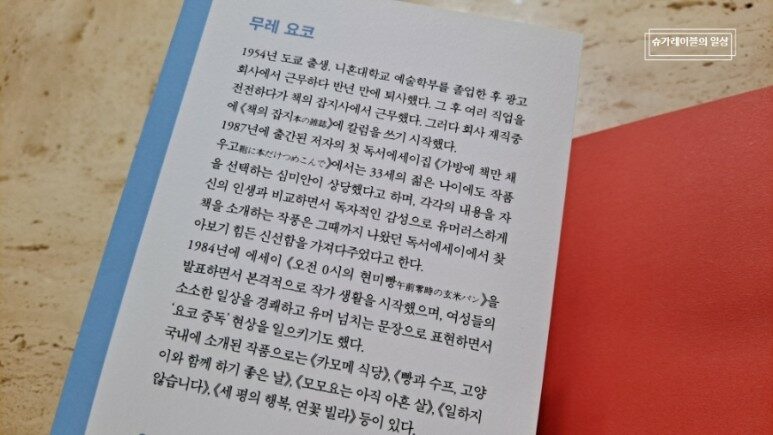 슈가레이블의 일상
무레 요코
1954년 도쿄 출생. 니혼대학교 예술학부를 졸업한 후 광고
회사에서 근무하다 반년 만에 퇴사했다. 그 후 여러 직업을
전전하다가 책의 잡지사에서 근무했다. 그러다 회사 재직중
에 《책의 잡지本の雑誌》에 칼럼을 쓰기 시작했다.
1987년에 출간된 저자의 첫 독서에세이집 《가방에 책만 채
우고鞄に本だけつめこんで》에서는 33세의 젊은 나이에도 작품
을 선택하는 심미안이 상당했다고 하며, 각각의 내용을 자
신의 인생과 비교하면서 독자적인 감성으로 유머러스하게
책을 소개하는 작풍은 그때까지 나왔던 독서에세이에서 찾
아보기 힘든 신선함을 가져다주었다고 한다.
1984년에 에세이 《오전 0시의 현미빵午前零時の玄米パン》을
발표하면서 본격적으로 작가 생활을 시작했으며, 여성들의
소소한 일상을 경쾌하고 유머 넘치는 문장으로 표현하면서
‘요코 중독’ 현상을 일으키기도 했다.
국내에 소개된 작품으로는 《카모메 식당》, 《빵과 수프, 고양
이와 함께 하기 좋은 날》, 《모모요는 아직 아흔 살》, 《일하지
않습니다》, 《세 평의 행복, 연꽃 빌라》 등이 있다.